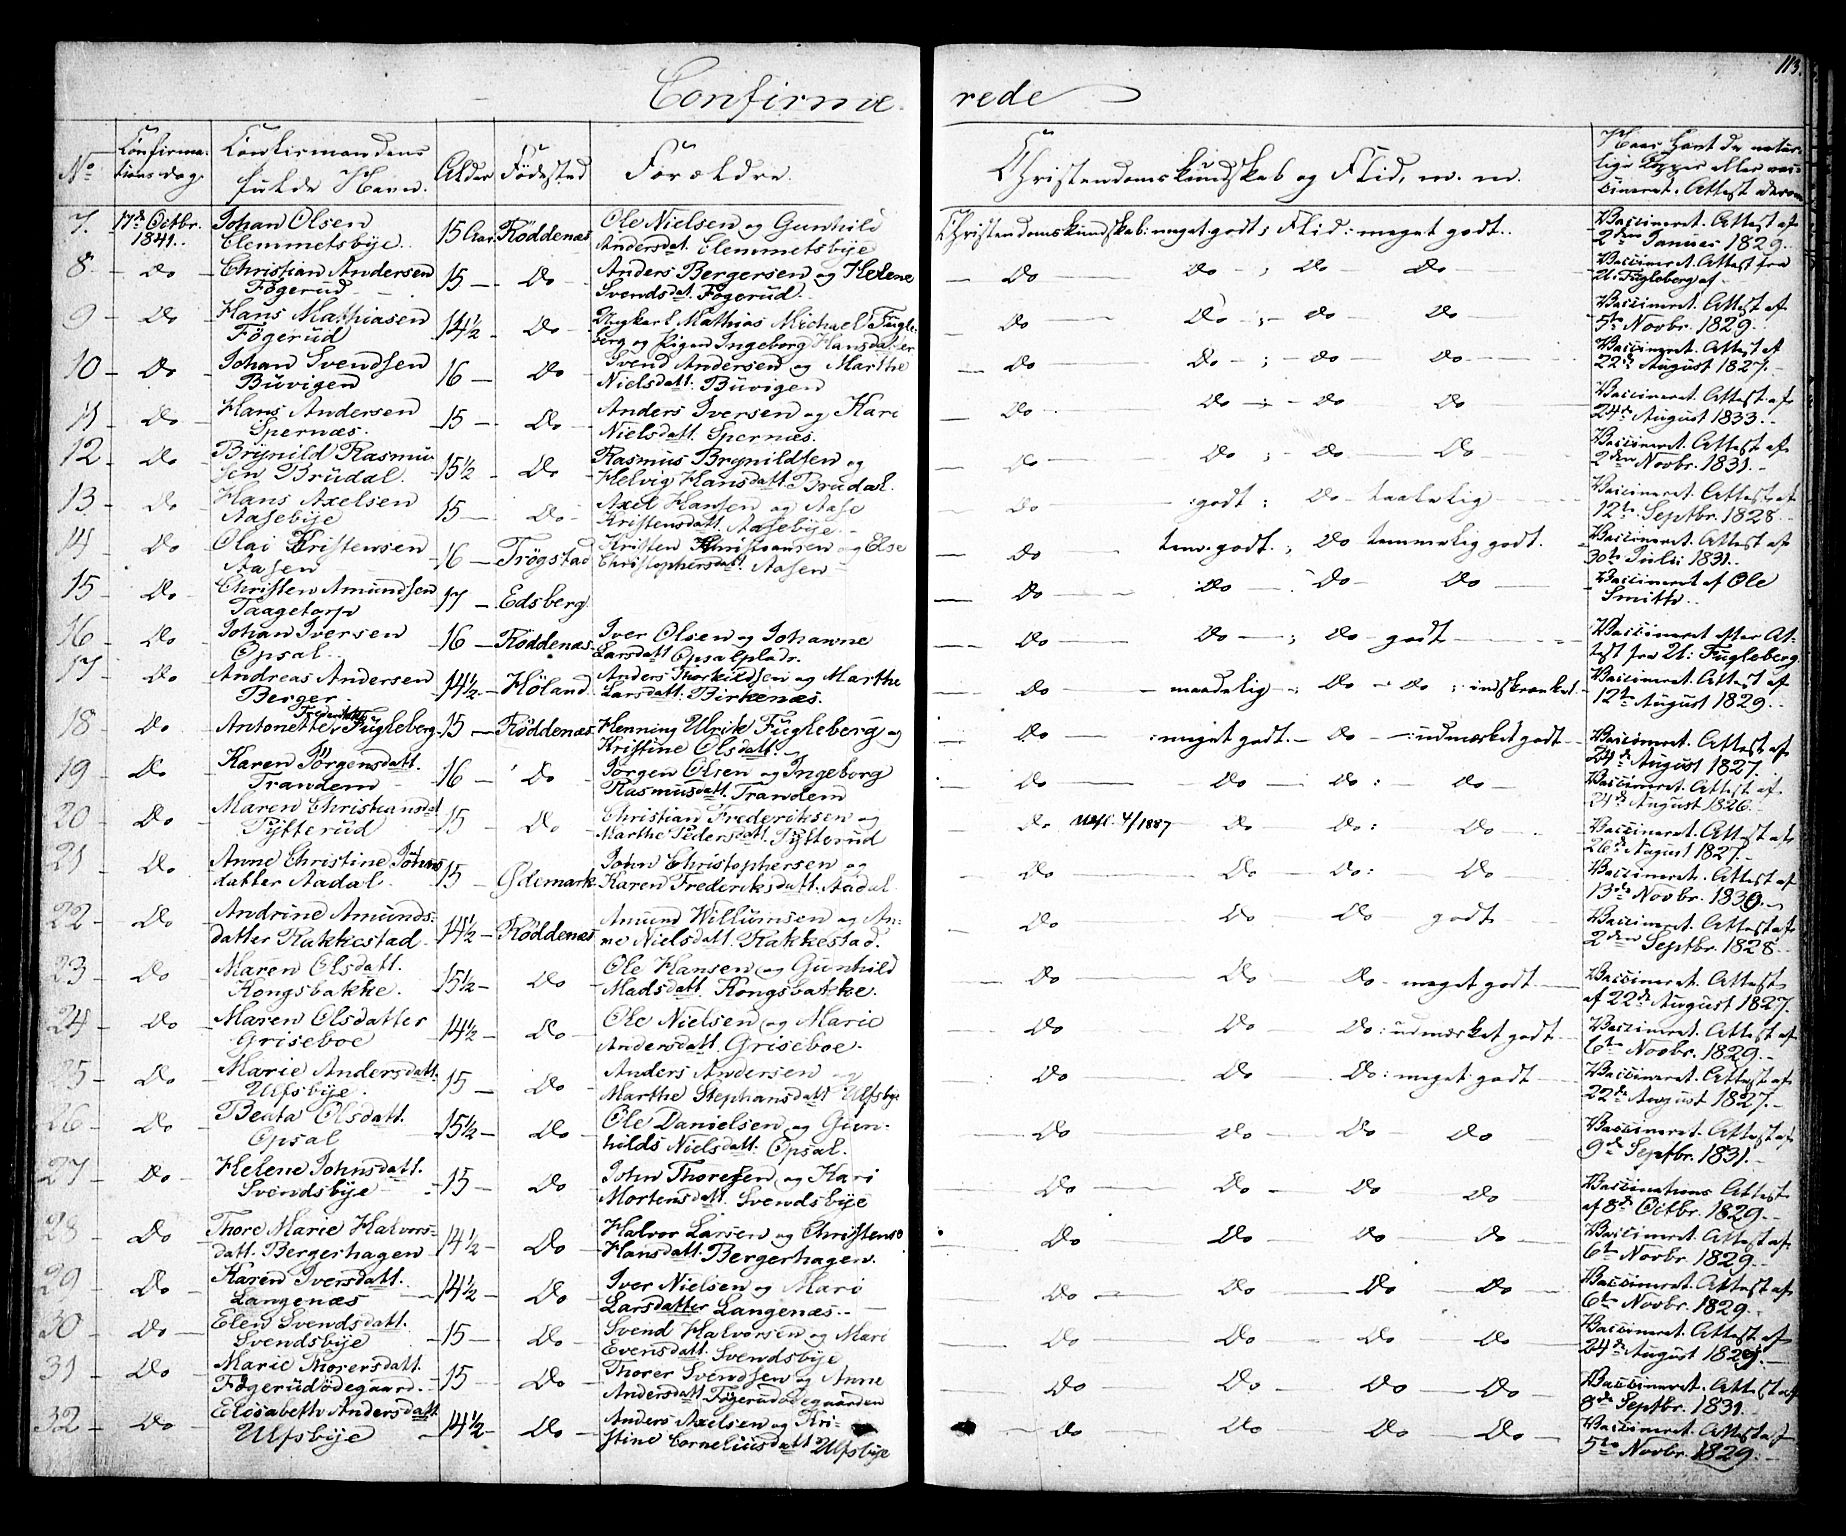 113.
Confirme- rede
No
Confirma-
tions dag.
Confirmandens
fulde Navn.
Alder
Födested
Forældre.
Christendomskundskab og Flid, m. m.
Naar havt de natur-
lige Kopper eller vac-
cineret. Attest derom
7. 17de Octbr. Johan Olsen 15 Aar Röddenæs Ole Nielsen og Gunhild Christendomskundskab: meget godt; Flid: meget godt. Vaccineret. Attest af
1841. Clemmetsbÿe. Andersdat. Clemmetsbÿe 2den Januar 1829.
8 do Christian Andersen 15 do Anders Bergersen og Helene do do ; do do Vaccineret. Attest fra
Fögerud Svendsdat. Fögerud. U: Fugleberg af
9 do Hans Mathiasen 14½ do Ungkarl Mathias Michael Fugle- do do ; do do Vaccineret. Attest af
Fögerud berg og Pigen Ingeborg Hansdatter 5te Novbr. 1829.
10 do Johan Svendsen 16 do Svend Andersen og Marthe do do ; do do Vaccineret. Attest af
Buvigen Nielsdatt. Buvigen 22de August 1827.
11 do Hans Andersen 15 do Anders Iversen og Kari do do ; do do Vaccineret. Attest af
Spernæs. Nielsdatt. Spernæs. 24de August 1833.
12 do Brÿnild Rasmu- 15½ do Rasmus Brynildsen og do do ; do do Vaccineret. Attest af
sen Brudal. Helvig Hansdatt. Brudal. 2den Novbr. 1831.
13 do Hans Axelsen 15 do Axel Hansen og Aase do godt ; do taalelig Vaccineret. Attest af
Aasebÿe Kristensdatt. Aasebÿe. 12te Septbr. 1828.
14 do Olai Kristensen 16 Trögstad Kristen Christiansen og Else do tem. godt. ; do temmelig godt. Vaccineret. Attest af
Aasen Christophersdat. Aasen 30te Juli 1831.
15 do Christen Amundsen 17 Edsberg do do do do Vaccineret af Ole
Taagetorp Smitth.
16 do Johan Iversen 16 Röddenæs Iver Olsen og Johanne do do ; do godt Vaccineret efter At-
Opsal Larsdatt Opsalplads. test fra U: Fugleberg
17 do Andreas Andersen 14½ Höland Anders Thorkildsen og Marthe do maadelig ; do do ; indskrænket Vaccineret. Attest af
Berger Larsdatt. Birkenæs. 12te August 1829.
18 do Antonette Frederikke Fugleberg 15 Röddenæs Henning Ulrik Fugleberg og do meget godt. do : udmærket godt Vaccineret. Attest af
Kristine Olsdatt. 24de August 1827.
19 do Karen Jörgensdatt. 16 do Jörgen Olsen og Ingeborg do do do : do Vaccineret. Attest af
Trandem Rasmusdatt. Trandem 24de August 1826.
20 do Maren Christiansdat 15 do Christian Frederiksen og do 4/1887 do do : do Vaccineret. Attest af
Tÿtterud Marthe Pedersdatt. Tÿtterud 26de August 1827.
21 do Anne Christine Johns 15 Ødemark John Christophersen og do do do : do Vaccineret. Attest af
datter Aadal. Karen Frederiksdatt. Aadal. 13de Novbr. 1830.
22 do Andrine Amunds- 14½ Röddenæs Amund Willumsen og An- do do do godt Vaccineret. Attest af
datter Rakkestad ne Nielsdatt. Rakkestad. 2den Septbr. 1828.
23 do Maren Olsdatt. 15½ do Ole Hansen og Gunhild do do do meget godt Vaccineret. Attest
Kongsbakke. Madsdatt. Kongsbakke. af 22de August 1827.
24 do Maren Olsdatter 14½ do Ole Nielsen og Marie do do do : udmærket godt Vaccineret. Attest af
Griseboe Andersdatt. Griseboe. 6te Novbr. 1829.
25 do Marie Andersdatt. 15 do Anders Andersen og do do do : meget godt Vaccineret. Attest af
Ulfsbÿe. Marthe Stephansdatt Ulfsbÿe 22de August 1827.
26 do Beata Olsdatt. 15½ do Ole Danielsen og Gun- do do do do Vaccineret. Attest af
Opsal hilds Nielsdatt. Opsal. 9de Septbr. 1831.
27 do Helene Johnsdatt. 15 do John Thoresen og Kari do do do do Vaccinations Attest
Svendsbÿe Mortensdatt. Svendsbÿe af 8de Octbr. 1829.
28 do Thore Marie Halvors- 14½ do Halvor Larsen og Christense do do do do Vaccineret. Attest af
datt. Bergerhagen Hansdatt. Bergerhagen. 6te Novbr. 1829.
29 do Karen Iversdatt. 14½ do Iver Nielsen og Mari do do do do Vaccineret. Attest af
Langenæs Larsdatter Langenæs. 6te Novbr. 1829.
30 do Elen Svendsdatt. 15 do Svend Halvorsen og Mari do do do do Vaccineret. Attest af
Svendsbÿe Evensdatt. Svendsbÿe 24de August 1829.
31 do Marie Thorersdatt. 15 do Thorer Svendsen og Anne do do do do Vaccineret. Attest af
Fögerudödegaard. Andersdatt. Fögerudödegaarden 8de Septbr. 1831.
32 do Elisabeth Andersdatt 14½ do Anders Axelsen og Kri- do do do do Vaccineret. Attest af
Ulfsbÿe stine Corneliusdatt Ulfsbÿe 5te Novbr. 1829.